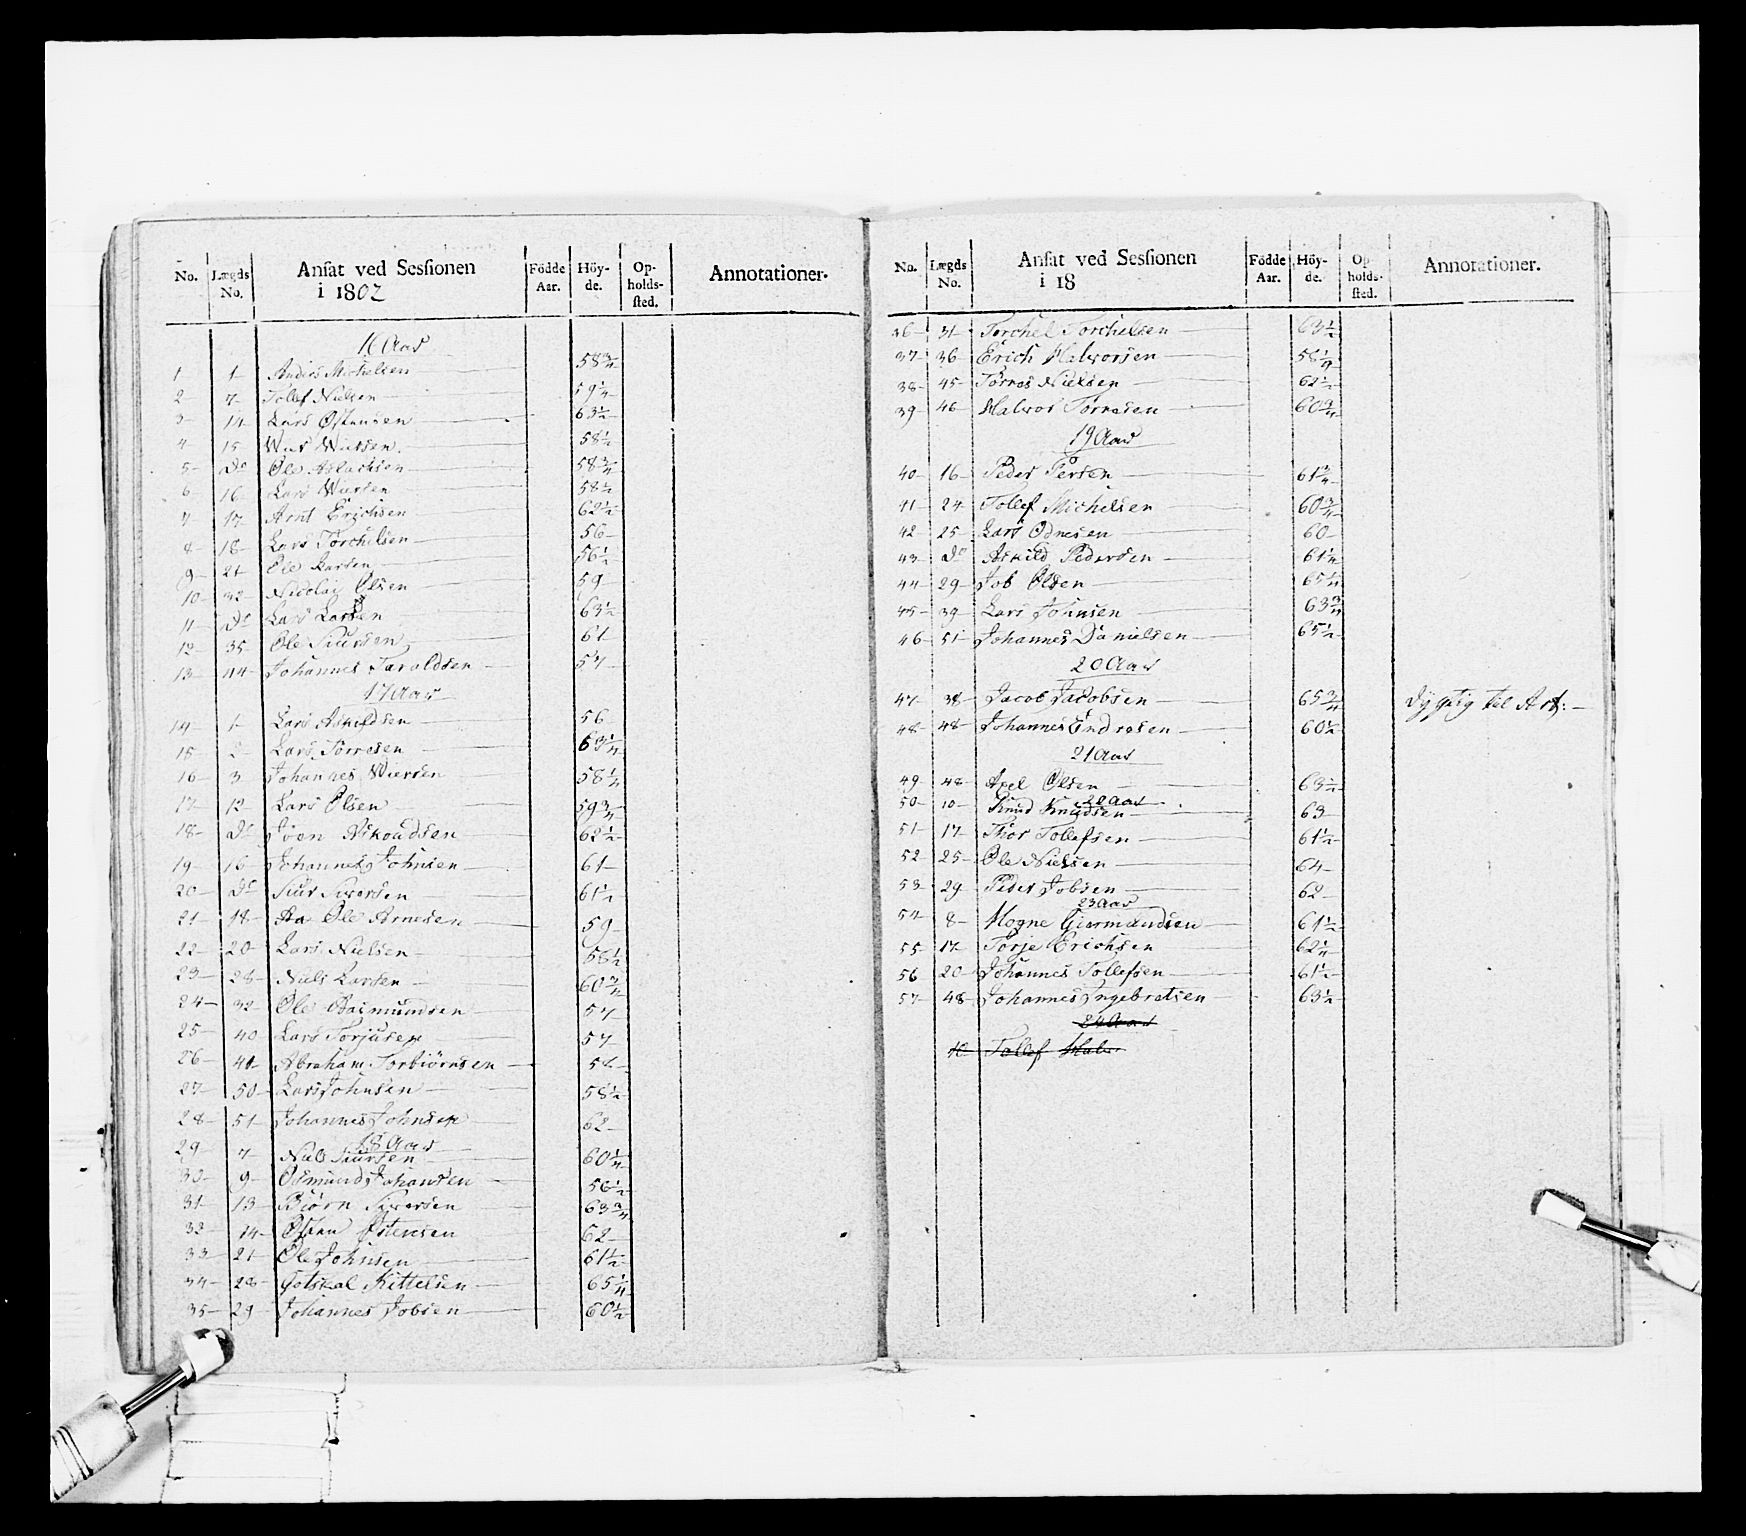 No. Lægds No. Ansat ved Sessionen i 1802 Födde Aar. Höyde. Opholdssted. Annotationer.
16 Aar
1 1 Anders Michelsen 58 3/4
2 7 Tollef Nielsen 59 1/4
3 14 Lars Ostensen 63 1/2
4 15 58 1/2
5 Do Ole Aslachsen 58 3/4
6 16 Lars 58 1/2
7 17 Arnt Erichsen 62 1/2
8 18 Lars Torchelsen 56
9 21 Ole Larsen 56 1/2
10 32 Nicolay Olsen 59
11 Do Lars Larsen 63 1/2
12 35 Ole Siursen 61
13 44 Johannes Taraldsen 57
17 Aar
14 1 Lars Askeldsen 56
15 2 Lars Torresen 63 1/4
16 3 Johannes Wiersen 58 1/4
17 12 Lars Olsen 59 3/4
18 Do Joen 62 1/2
19 16 Johannes Johnsen 61
20 Do Siur Siversen 61 1/2
21 18 Ole Arnesen 59
22 20 Lars Nielsen 58 1/2
23 28 Niels Larsen 60 3/4
24 32 Ole Rasmundsen 57
25 40 Lars Torjusen 57
26 41 Abraham Torbiörnsen 58
27 50 Lars Johnsen 58 1/2
28 51 Johannes Johnsen 62
18 Aar
29 7 Niels Siursen 60 1/4
30 9 Osmund Johansen 56 1/2
31 13 Biörn Siversen 63 3/4
32 14 Østensen 62
33 21 Ole Johnsen 61 1/2
34 28 Gotskal Kittelsen 65 1/4
35 29 Johannes Jobsen 60 1/2
No. Lægds No. Ansat ved Sessionen i 18 Födde Aar. Höyde. Opholdssted. Annotationer.
36 31 Torchel Torchelsen 63 1/2
37 36 Erich Halvorsen 58 1/4
38 45 Torres Nielsen 62 1/2
39 46 Halvor Torresen 60 3/4
19 Aar
40 16 Peder Persen 61 3/4
41 24 Tollef Michelsen 60 3/4
42 25 Lars Odnesen 60
43 Do Askild Pedersen 61 1/4
44 29 Job Olsen 65 1/4
45 39 Lars Johnsen 63 3/4
46 51 Johannes Danielsen 65 1/2
20 Aar
47 38 Jacob Jacobsen 65 3/4 Dygtig til Art:
48 48 Johannes Endresen 60 1/2
21 Aar
49 48 Axel Olsen 63 1/2
22 Aar
50 10 Knud Knudsen 63
51 17 Thor Tollefsen 61 1/2
52 25 Ole Nielsen 64
53 29 Peder Jobsen 62
23 Aar
54 8 Mogne Giermundsen 61 1/2
55 17 Torje Erichsen 62 1/4
56 20 Johannes Tollefsen 61 1/2
57 48 Johannes Ingebretsen 63 1/2
24 Aar
10 Tollef Halv